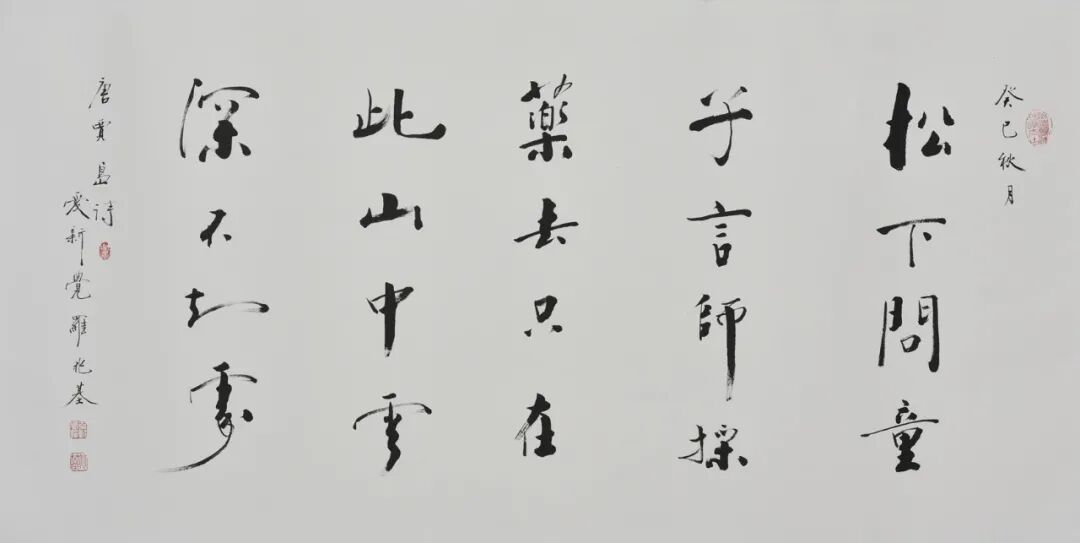 癸巳秋月
松下問童
子言師採
藥去只在
此山中雲
深不知處
唐賈島詩
愛新覺羅兆基